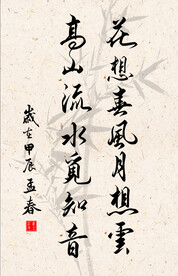 花想春風月想雲
高山流水覓知音
歲在甲辰孟春